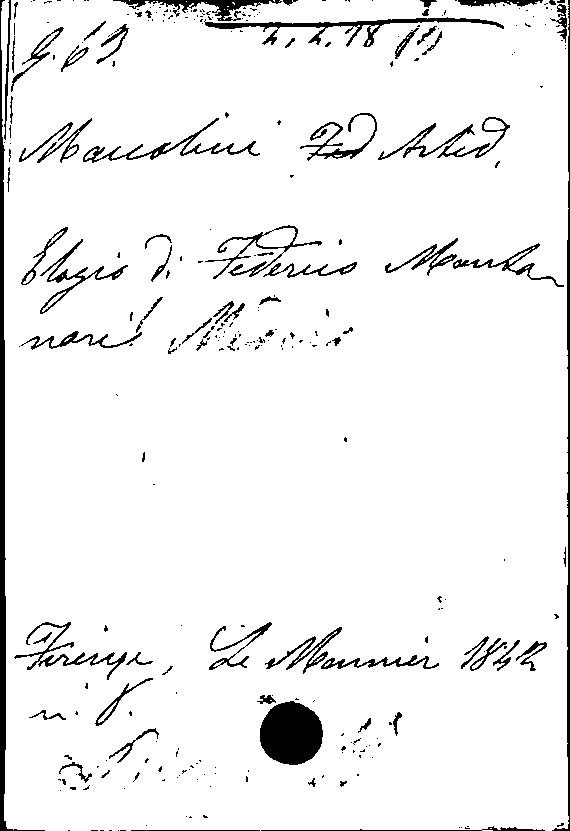 G. 63. 2. 2. 18 (1)
Marcolini Fed Artid.
Elogio di Federico Monta-
nari!
Firenze, Le Monnier 1842
in. 8.